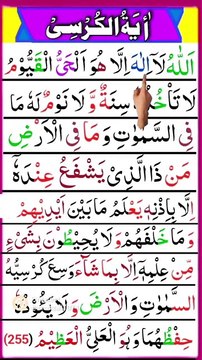 اٰيَةُ الْكُرْسِىْ
اَللّٰهُ لَاۤ اِلٰهَ اِلَّا هُوَ الْحَىُّ الْقَيُّوْمُ
لَا تَاْخُذُهٗ سِنَةٌ وَّلَا نَوْمٌ لَهٗ مَا
فِى السَّمٰوٰتِ وَمَا فِى الْاَرْضِ
مَنْ ذَا الَّذِىْ يَشْفَعُ عِنْدَهٗۤ
اِلَّا بِاِذْنِهٖ يَعْلَمُ مَا بَيْنَ اَيْدِيْهِمْ
وَمَا خَلْفَهُمْ وَلَا يُحِيْطُوْنَ بِشَىْءٍ
مِّنْ عِلْمِهٖۤ اِلَّا بِمَا شَآءَ وَسِعَ كُرْسِيُّهُ
السَّمٰوٰتِ وَالْاَرْضَ وَلَا يَئُوْدُهٗ
حِفْظُهُمَا وَهُوَ الْعَلِىُّ الْعَظِيْمُ (255)